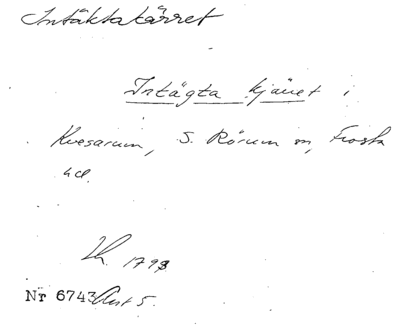 Intäktakärret
Intägta kjäret i
Kvesarum, S. Rörum sn, Frosta
hd.
Lh. 1798
Nr 6743 Akt 5.